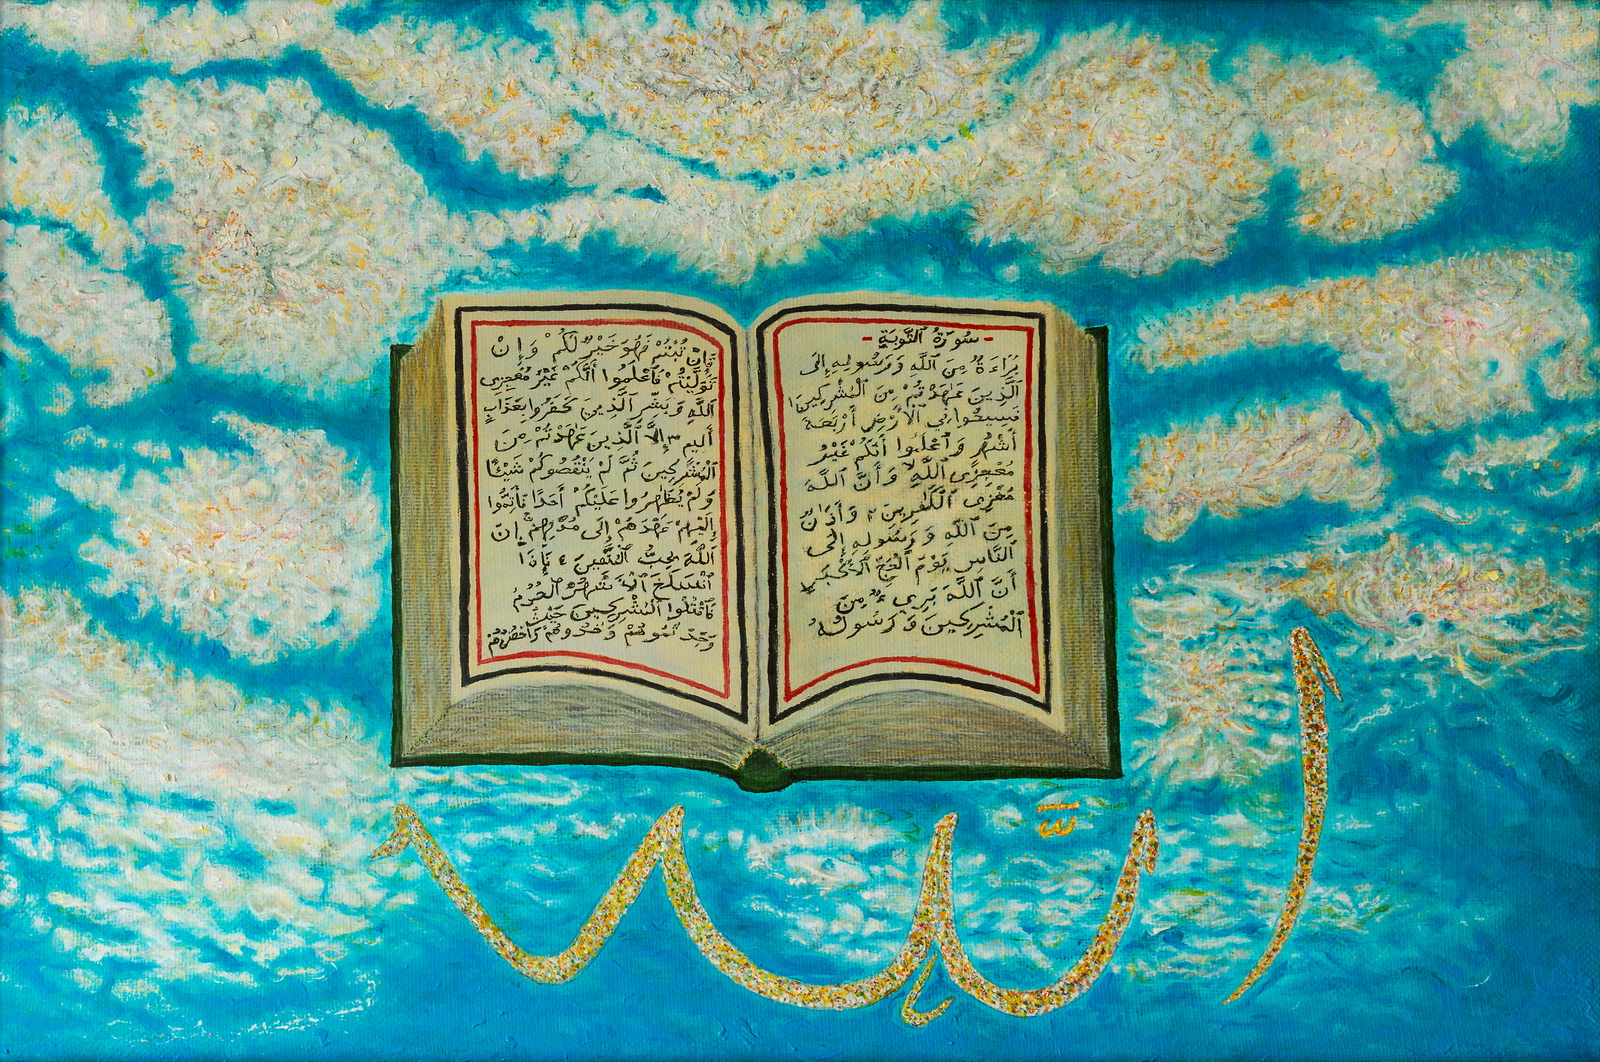 - سُورَةُ التَّوبَةِ -
بَرَاءَةٌ مِنَ ٱللَّهِ وَرَسُولِهِ إِلَى
ٱلَّذِينَ عَٰهَدْتُمْ مِنَ ٱلْمُشْرِكِينَ ١
فَسِيحُوا فِي ٱلْأَرْضِ أَرْبَعَةَ
أَشْهُرٍ وَٱعْلَمُوا أَنَّكُمْ غَيْرُ
مُعْجِزِي ٱللَّهِ وَأَنَّ ٱللَّهَ
مُخْزِي ٱلْكَٰفِرِينَ ٢ وَأَذَانٌ
مِنَ ٱللَّهِ وَرَسُولِهِ إِلَى
ٱلنَّاسِ يَوْمَ ٱلْحَجِّ ٱلْأَكْبَرِ
أَنَّ ٱللَّهَ بَرِيءٌ مِنَ
ٱلْمُشْرِكِينَ وَرَسُولُهُ
فَإِنْ تُبْتُمْ فَهُوَ خَيْرٌ لَكُمْ وَإِنْ
تَوَلَّيْتُمْ فَٱعْلَمُوا أَنَّكُمْ غَيْرُ مُعْجِزِي
ٱللَّهِ وَبَشِّرِ ٱلَّذِينَ كَفَرُوا بِعَذَابٍ
أَلِيمٍ ٣ إِلَّا ٱلَّذِينَ عَٰهَدْتُمْ مِنَ
ٱلْمُشْرِكِينَ ثُمَّ لَمْ يَنْقُصُوكُمْ شَيْئًا
وَلَمْ يُظَٰهِرُوا عَلَيْكُمْ أَحَدًا فَأَتِمُّوا
إِلَيْهِمْ عَهْدَهُمْ إِلَى مُدَّتِهِمْ إِنَّ
ٱللَّهَ يُحِبُّ ٱلْمُتَّقِينَ ٤ فَإِذَا
ٱنْسَلَخَ ٱلْأَشْهُرُ ٱلْحُرُمُ
فَٱقْتُلُوا ٱلْمُشْرِكِينَ حَيْثُ
وَجَدْتُمُوهُمْ وَخُذُوهُمْ وَٱحْصُرُوهُمْ
الله